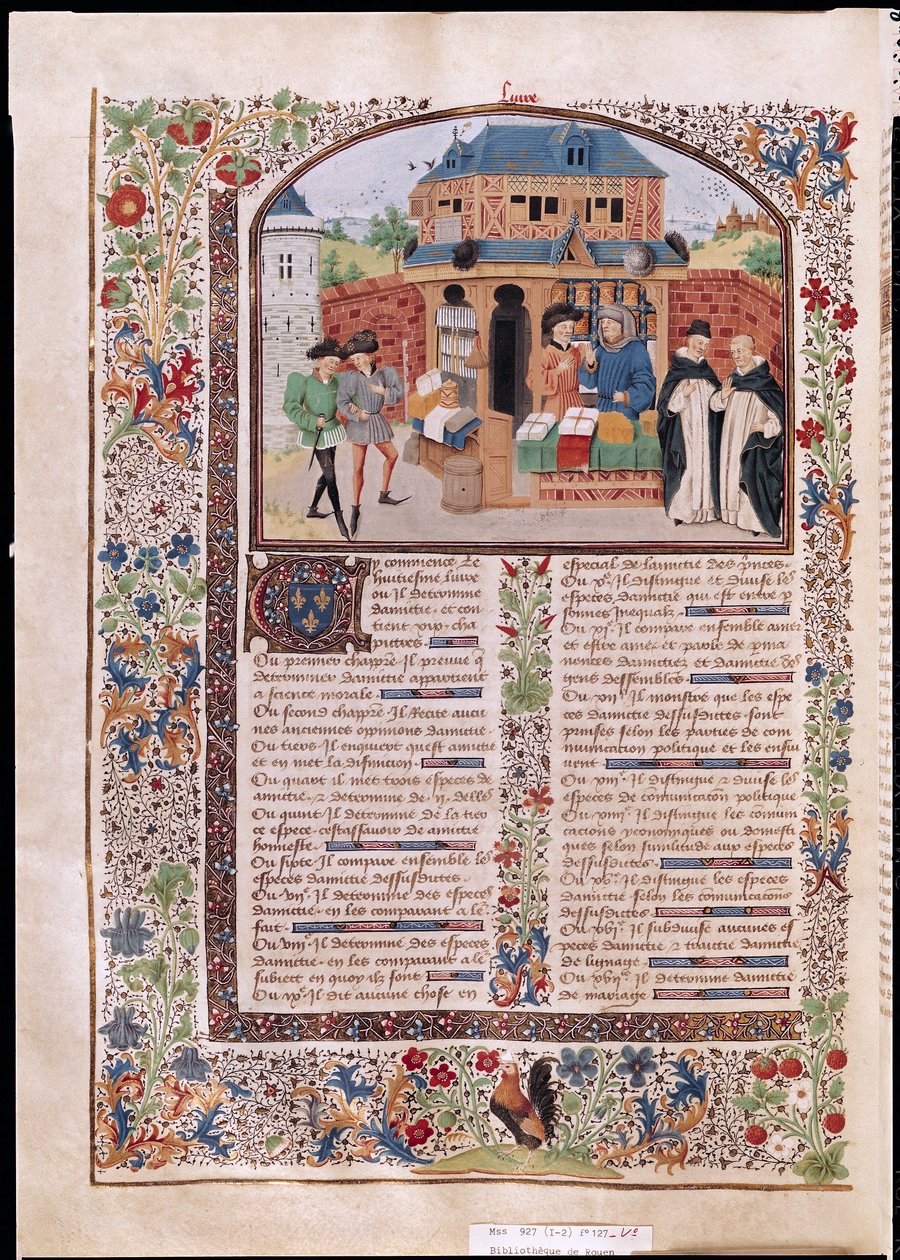 Livre
Cy commence le
huitiesme livre
ou il determine
damitie · et con
tient xvij · cha
pittres ·
Ou premier chappre Il preuve q̄
determiner damitie appartient
a science morale ·
Ou second chappre · Il Recite aucu
nes anciennes oppinions damitie
Ou tiers Il enquiert quest amitie
et en met la difinicion ·
Ou quart il met trois especes de
amitie · et determine de · ij · delles
Ou quint Il determine de la tier
ce espece · cestassavoir de amitie
honneste ·
Ou sixte Il compare ensemble les
especes damitie dessusdittes ·
Ou vije Il determine des especes
damitie · en les comparant a leur
fait ·
Ou viije Il determine des especes
damitie · en les comparant a leur
subiect en quoy ilz sont
Ou ixe Il dit aucune chose en
especial de lamitie des prices ·
Ou xe Il distingue et divise les
especes damitie qui est entre p
sonnes inequalz ·
Ou xje Il compare ensemble amer
et estre ame et parle de p̄ma
nences damitiez et damitie de
gens dessemblés
Ou xije Il monstre que les espe
ces damitie dessusdittes sont
prinses selon les parties de com
munication politique et les ensui
vent ·
Ou xiije Il distingue et divise les
especes de cōmunicacōn politique
Ou xiiije Il distingue les cōmun
cacions yconomiques ou domesti
ques selon similitude aux especes
dessusdittes
Ou xve Il distingue les especes
damitie selon les cōmunicacōns
dessusdittes
Ou xvje Il subdivise aucunes es
peces damitie et traictie damitie
de lignage
Ou xvije Il determine damitie
de mariage
Mss 927 (I-2) fº127 Vº
Bibliothèque de Rouen